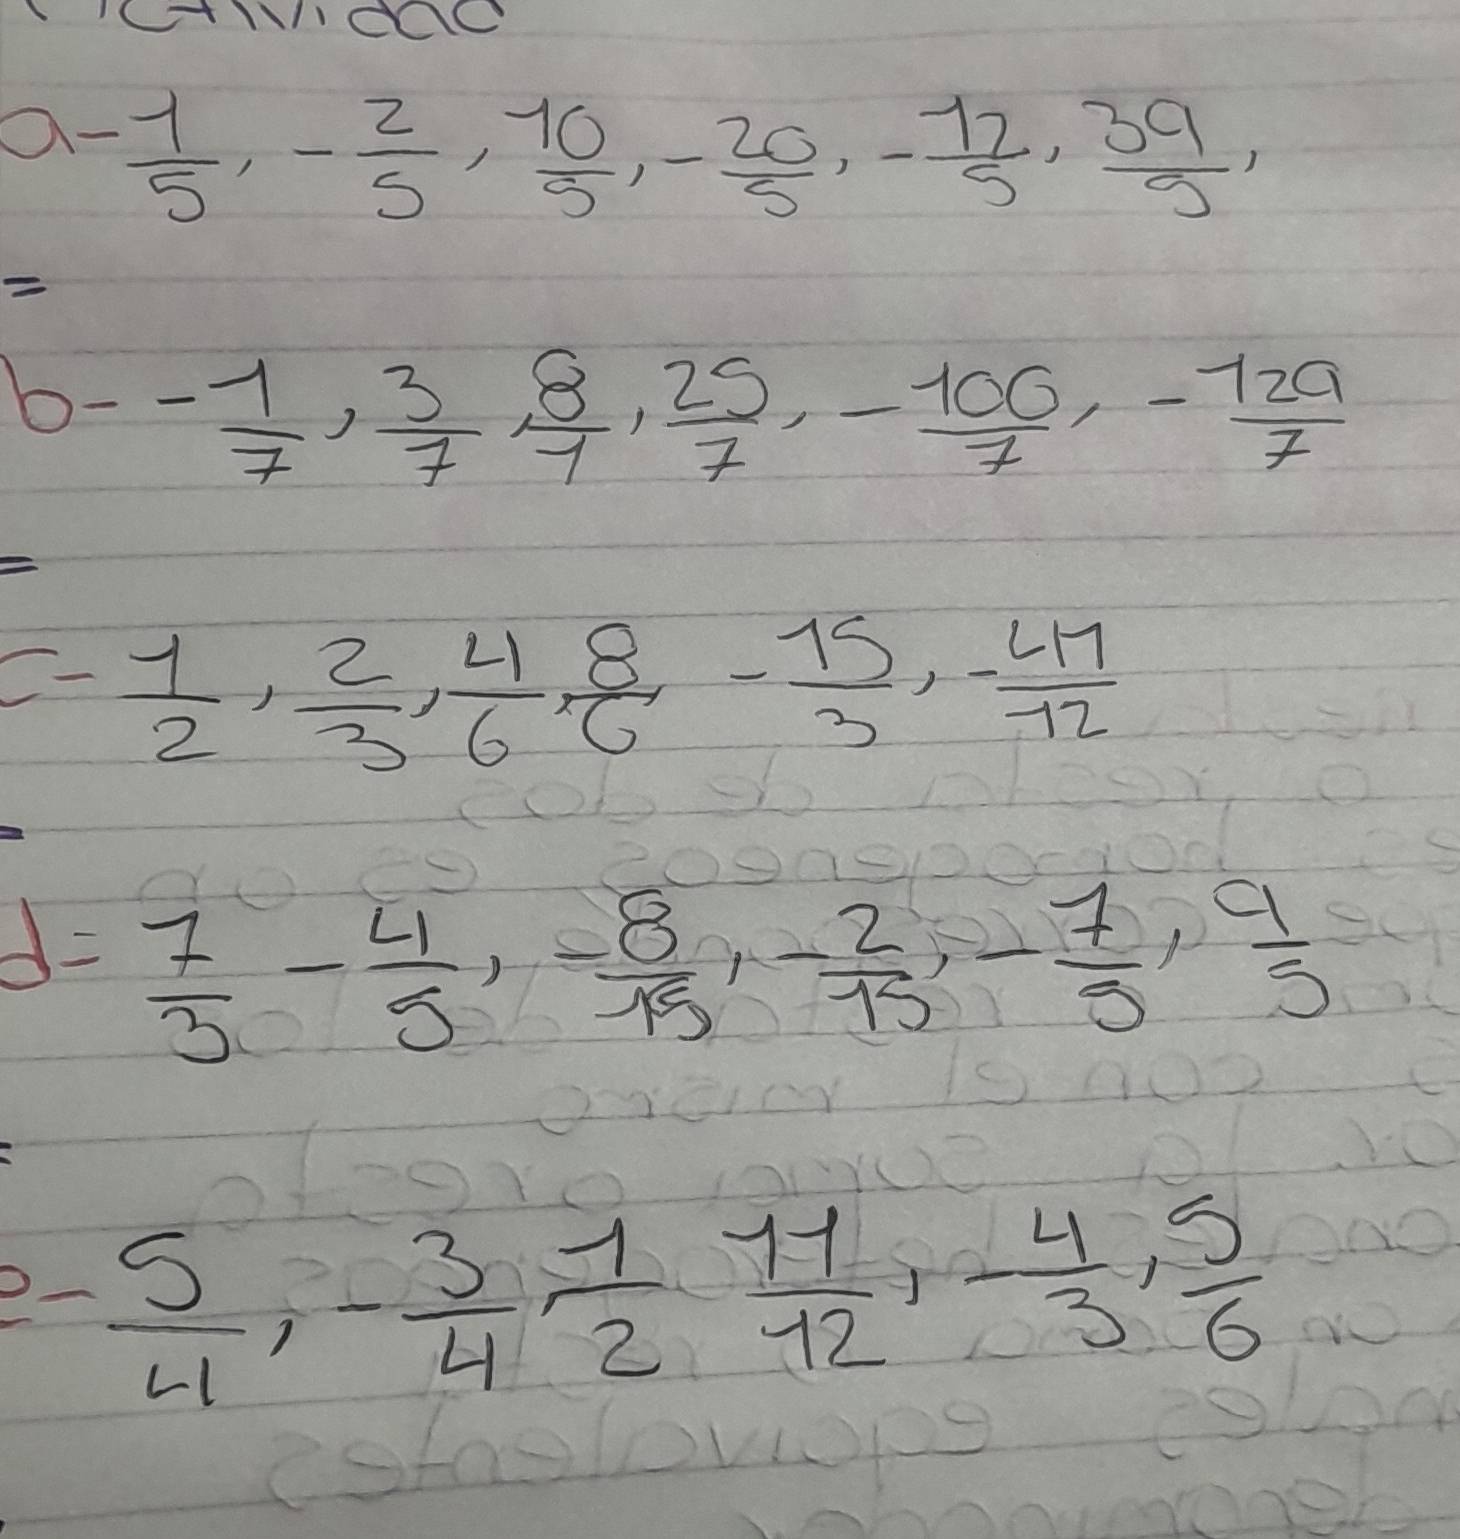 Actividad
a- 1/5, - 2/5, 10/5, - 20/5, - 12/5, 39/5,
=
b- - 1/7, 3/7, 8/7, 25/7, - 100/7, - 129/7
=
c- 1/2, 2/3, 4/6, 8/6 - 15/3, - 41/12
=
d= 7/3 - 4/5, - 8/15, - 2/15, - 7/5, 9/5
=
e- 5/4, - 3/4, 1/2 11/12, - 4/3, 5/6